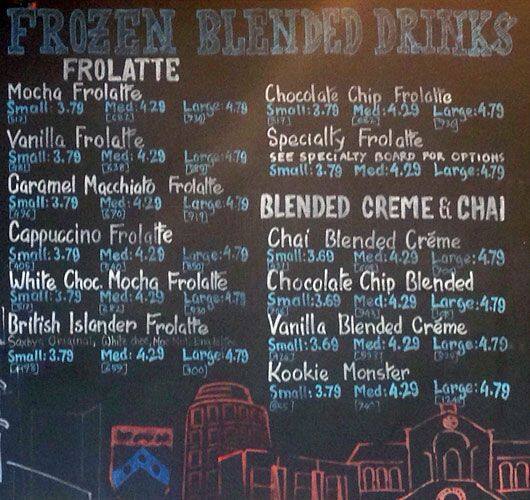 FROZEN BLENDED DRINKS
FROLATTE
Mocha Frolatte
Small: 3.79 Med: 4.29 Large: 4.79
Vanilla Frolatte
Small: 3.79 Med: 4.29 Large: 4.79
Caramel Macchiato Frolatte
Small: 3.79 Med: 4.29 Large: 4.79
Cappuccino Frolatte
Small: 3.79 Med: 4.29 Large: 4.79
White Choc. Mocha Frolatte
Small: 3.79 Med: 4.29 Large: 4.79
British Islander Frolatte
Small: 3.79 Med: 4.29 Large: 4.79
Chocolate Chip Frolatte
Small: 3.79 Med: 4.29 Large: 4.79
Specialty Frolatte
SEE SPECIALTY BOARD FOR OPTIONS
Small: 3.79 Med: 4.29 Large: 4.79
BLENDED CREME & CHAI
Chai Blended Créme
Small: 3.69 Med: 4.29 Large: 4.79
Chocolate Chip Blended
Small: 3.69 Med: 4.29 Large: 4.79
Vanilla Blended Créme
Small: 3.69 Med: 4.29 Large: 4.79
Kookie Monster
Small: 3.79 Med: 4.29 Large: 4.79